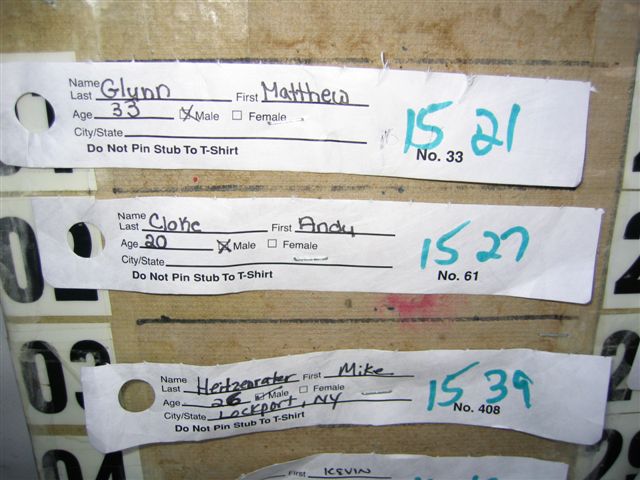 Name Last Glynn First Matthew
Age 33 Male Female
City/State
Do Not Pin Stub To T-Shirt
No. 33
15 21
Name Last Cloke First Andy
Age 20 Male Female
City/State
Do Not Pin Stub To T-Shirt
No. 61
15 27
03
Name Last Heitzenrater First Mike
Age 26 Male Female
City/State Lockport, NY
Do Not Pin Stub To T-Shirt
No. 408
15 39
04
First KEVIN